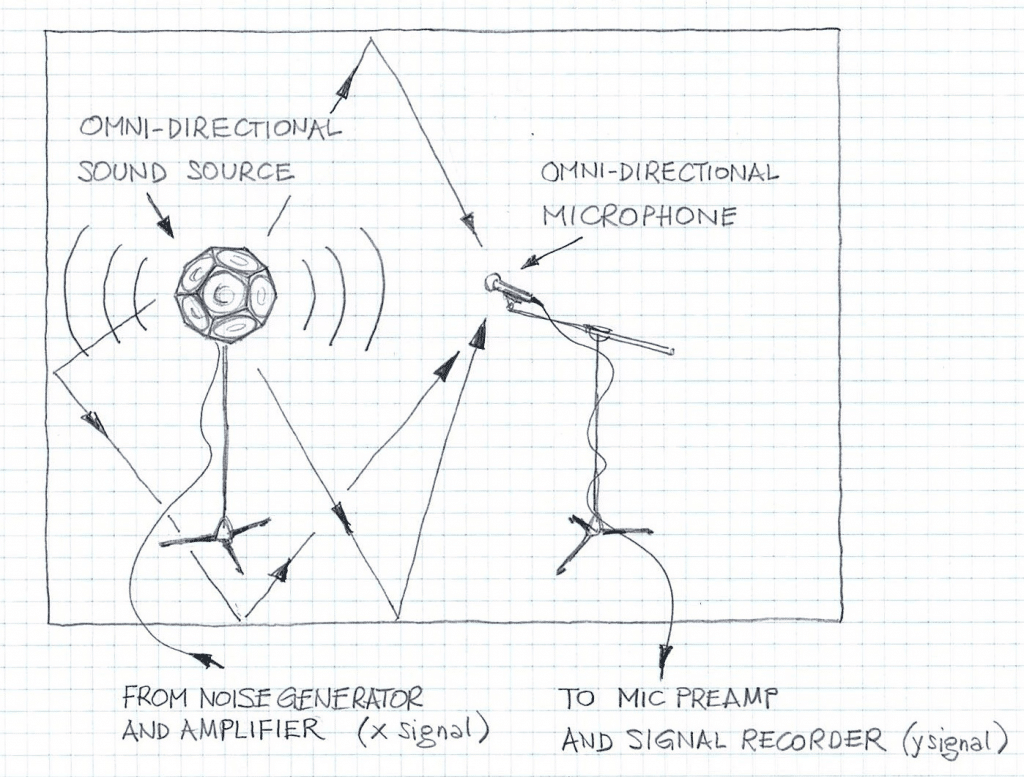 OMNI-DIRECTIONAL
SOUND SOURCE
OMNI-DIRECTIONAL
MICROPHONE
FROM NOISE GENERATOR
AND AMPLIFIER (x signal)
TO MIC PREAMP
AND SIGNAL RECORDER (y signal)